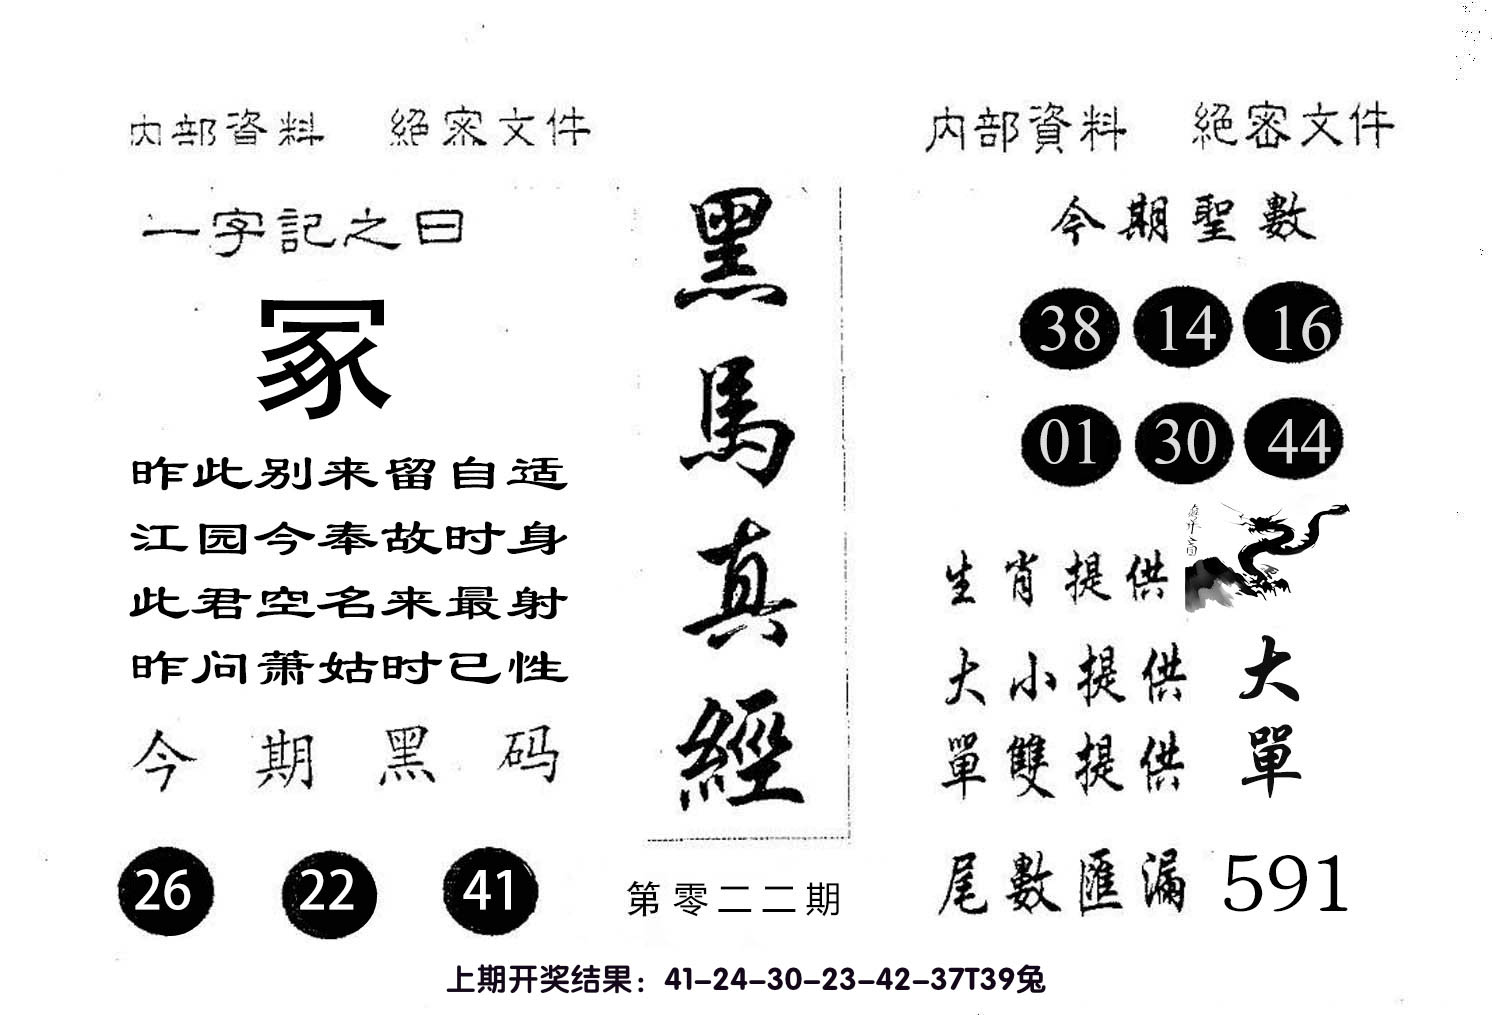 内部資料 絕密文件
一字記之曰
冢
昨此别来留自适
江园今奉故时身
此君空名来最射
昨问萧姑时已性
今期黑码
26 22 41
黑馬真經
第零二二期
内部資料 絕密文件
今期聖數
38 14 16
01 30 44
生肖提供
大小提供 大
單雙提供 單
尾數匯漏 591
上期开奖结果：41-24-30-23-42-37T39兔